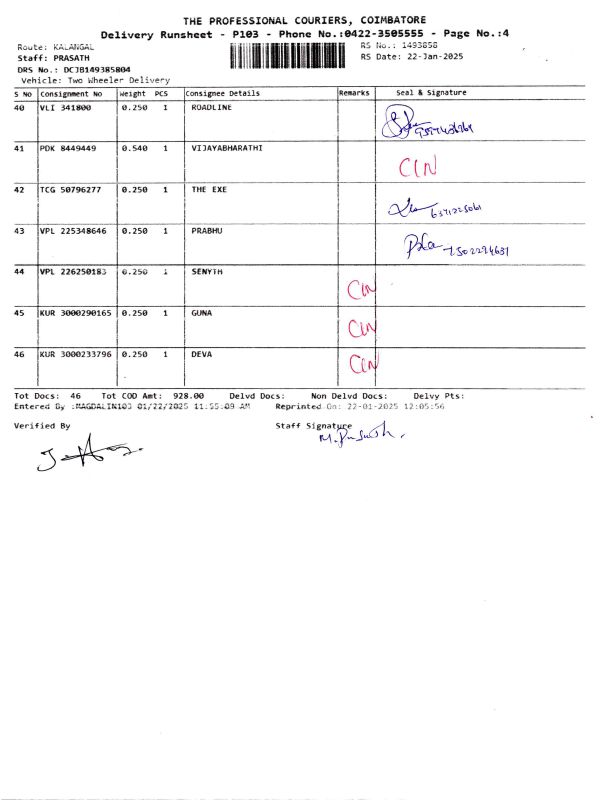 THE PROFESSIONAL COURIERS, COIMBATORE
Delivery Runsheet - P103 - Phone No.:0422-3505555 - Page No.:4
Route: KALANGAL RS No.: 1493858
Staff: PRASATH RS Date: 22-Jan-2025
DRS No.: DCJB149385804
Vehicle: Two Wheeler Delivery
S No Consignment No Weight PCS Consignee Details Remarks Seal & Signature
40 VLI 341800 0.250 1 ROADLINE
41 PDK 8449449 0.540 1 VIJAYABHARATHI CIN
42 TCG 50796277 0.250 1 THE EXE
43 VPL 225348646 0.250 1 PRABHU 7502294631
44 VPL 226250183 0.250 1 SENYTH CIN
45 KUR 3000290165 0.250 1 GUNA CIN
46 KUR 3000233796 0.250 1 DEVA CIN
Tot Docs: 46 Tot COD Amt: 928.00 Delvd Docs: Non Delvd Docs: Delvy Pts:
Entered By :MAGDALIN103 01/22/2025 11:55:09 AM Reprinted On: 22-01-2025 12:05:56
Verified By Staff Signature
M. Prasath.